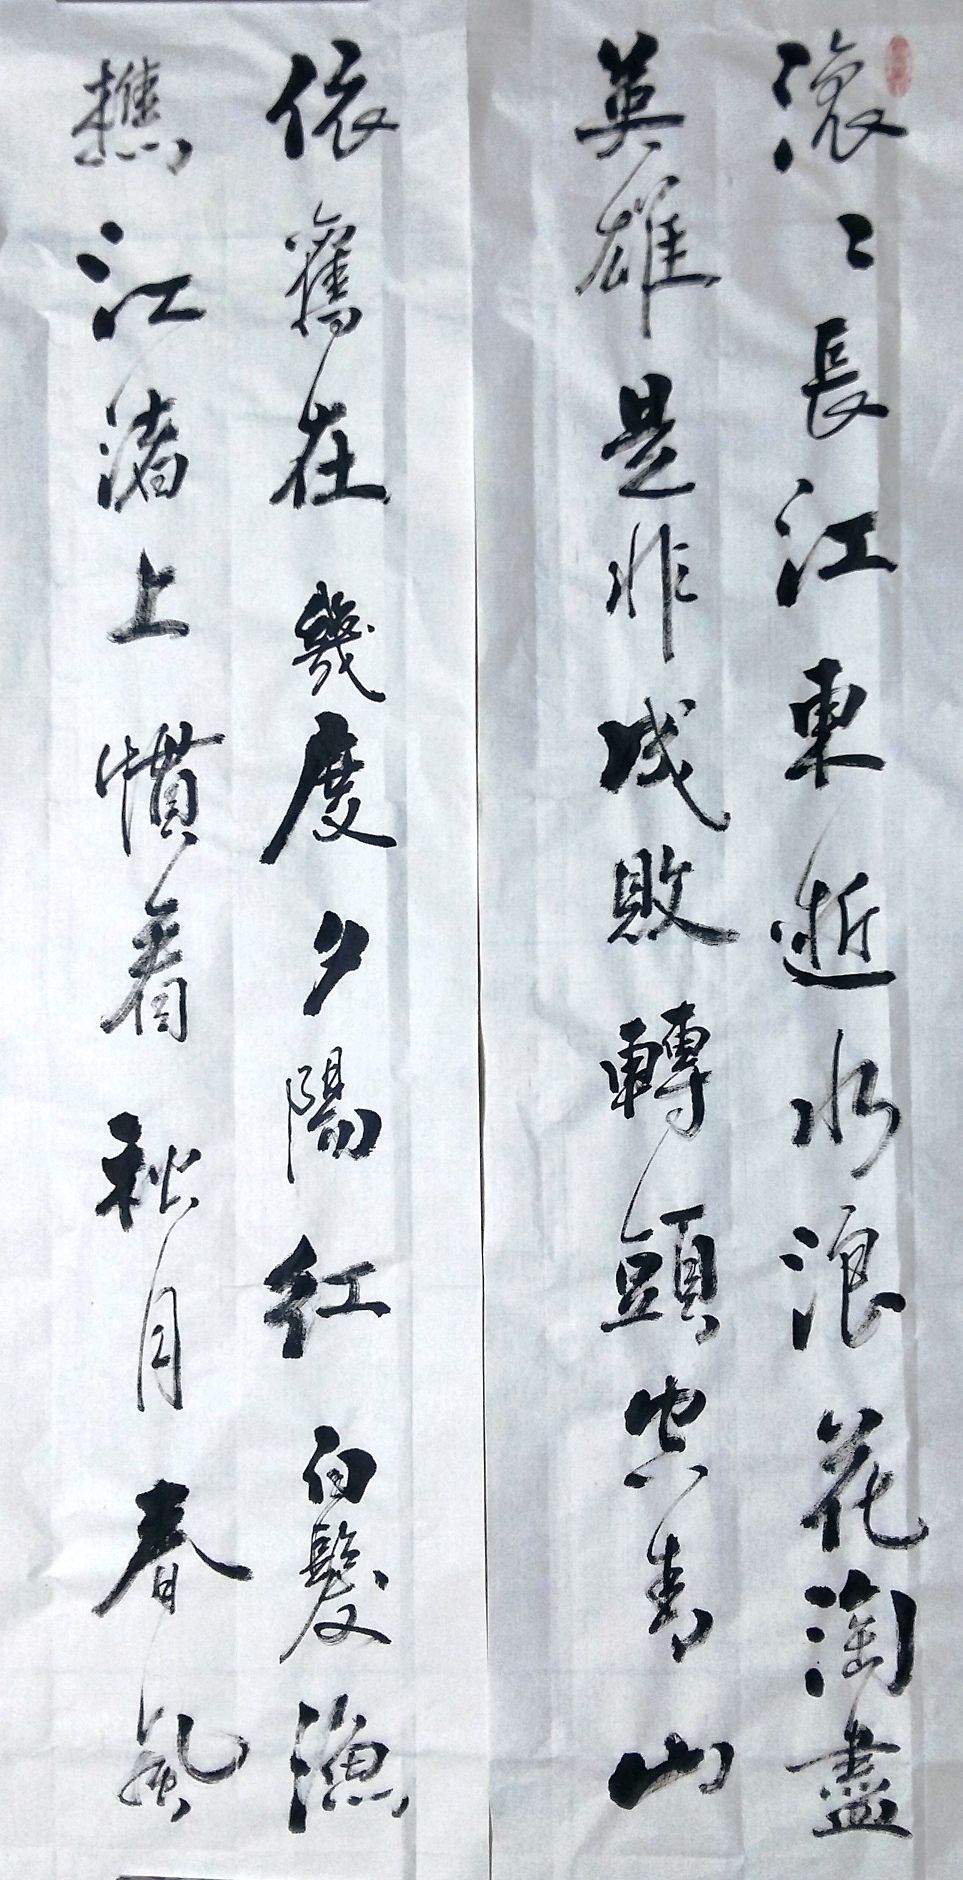 滚〻長江東逝水浪花淘盡
英雄是非成敗轉頭空青山
依舊在幾度夕陽紅白髮漁
樵江渚上慣看秋月春風